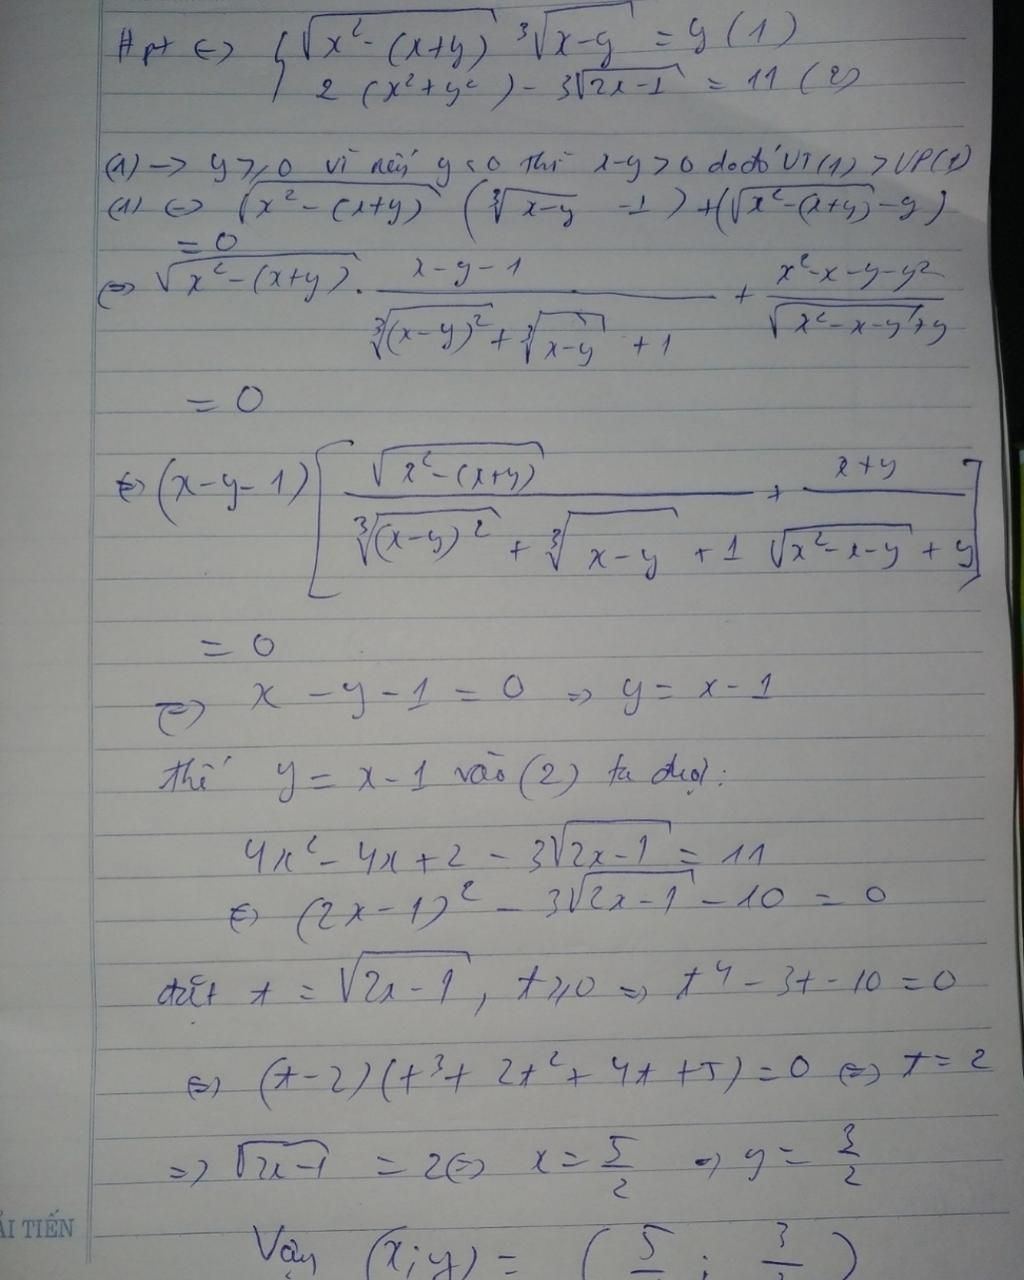 Hpt ⇔ { √(x² - (x+y)) ³√(x-y) = y (1)
2 (x² + y²) - 3√(2x-1) = 11 (2)
(1) → y ≥ 0 vì nếu y < 0 thì x-y > 0 do đó VT(1) > VP(1)
(1) ⇔ √(x² - (x+y)) (³√(x-y) - 1) + (√(x² - (x+y)) - y)
= 0
⇔ √(x² - (x+y)) . (x-y-1)/(³√((x-y)²) + ³√(x-y) + 1) + (x² - x - y - y²)/(√(x² - x - y) + y)
= 0
⇔ (x-y-1) [ √(x² - (x+y))/(³√((x-y)²) + ³√(x-y) + 1) + (x+y)/(√(x² - x - y) + y) ]
= 0
⇔ x - y - 1 = 0 ⇒ y = x - 1
thế y = x - 1 vào (2) ta được:
4x² - 4x + 2 - 3√(2x-1) = 11
⇔ (2x-1)² - 3√(2x-1) - 10 = 0
đặt t = √(2x-1), t ≥ 0 ⇒ t⁴ - 3t - 10 = 0
⇔ (t-2)(t³ + 2t² + 4t + 5) = 0 ⇔ t = 2
⇒ √(2x-1) = 2 ⇔ x = 5/2 ⇒ y = 3/2
ẢI TIẾN
Vậy (x;y) = (5/2 ; 3/2)